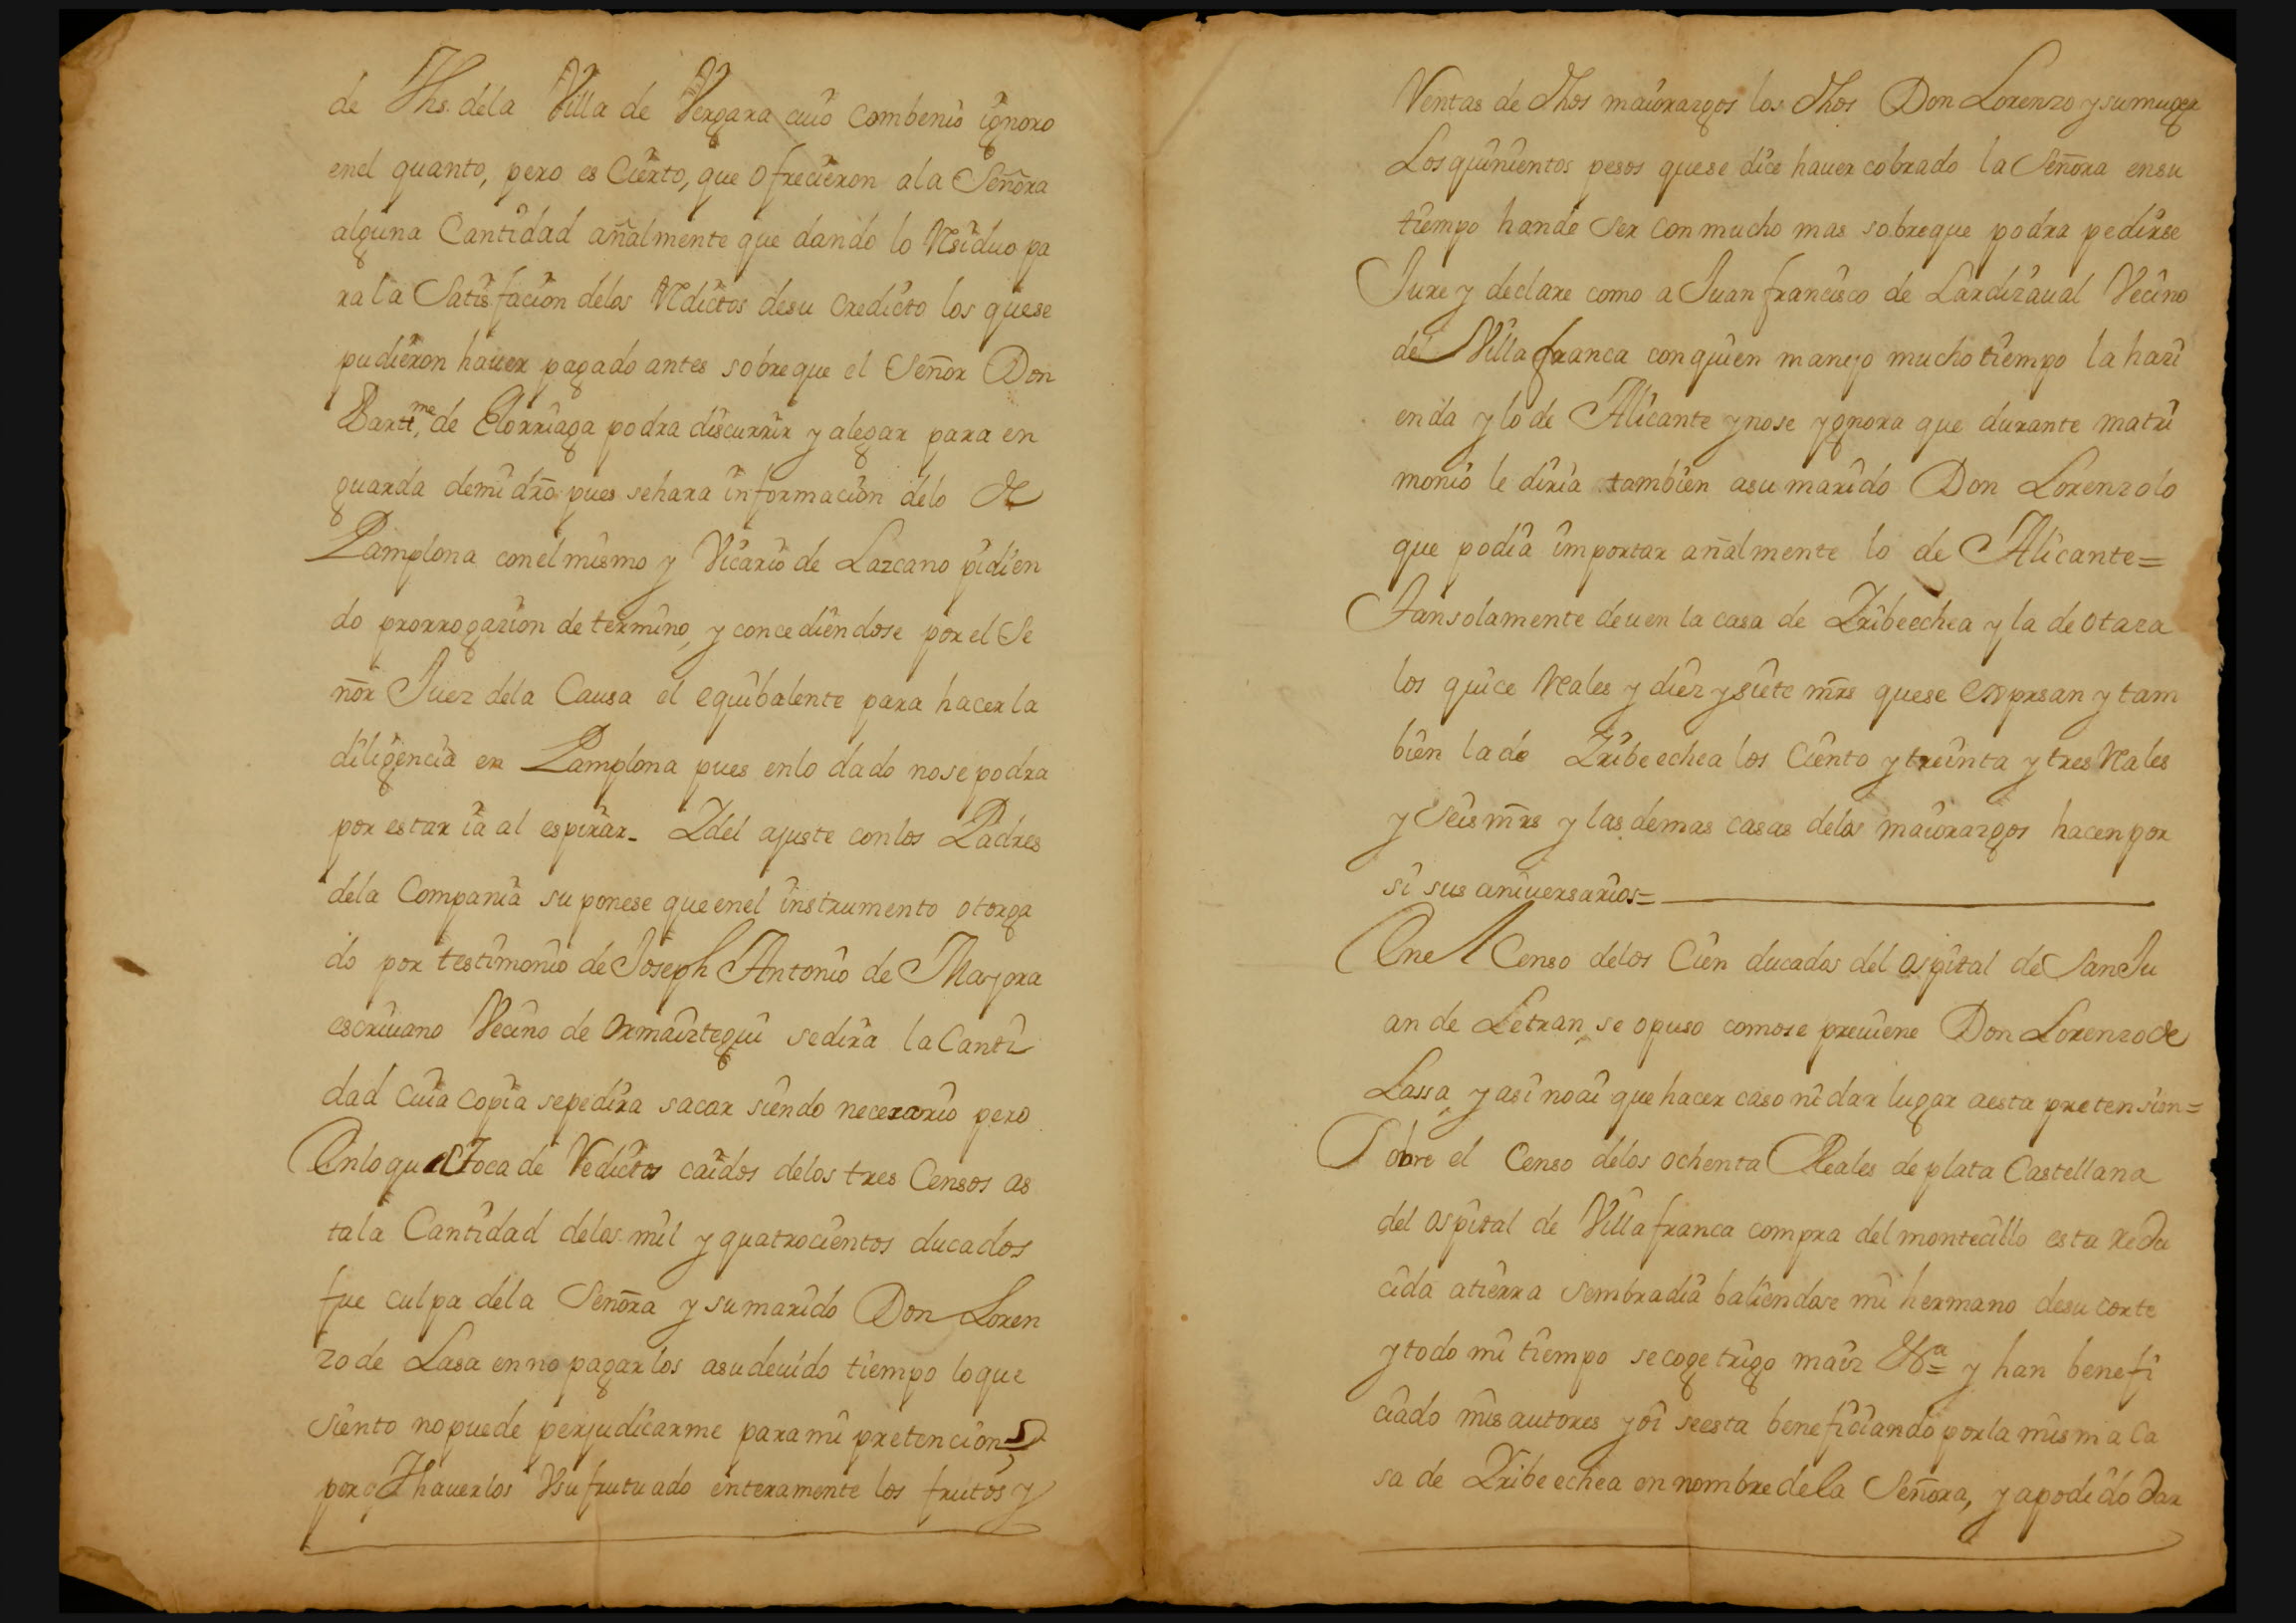 de Jhs. dela Villa de Vergara cuio combenio ignoro
enel quanto, pero es Cierto, que ofrecieron ala Señora
alguna Cantidad añalmente que dando lo Residuo pa
rala Satisfacion delos Redictos desu credicto los quese
pudieron hauer pagado antes sobreque el Señor Don
Bartme. de Elorriaga podra discurrir y alegar para en
guarda demi dro. pues sehara informacion delo de
Pamplona conelmismo y Vicario de Lazcano pidien
do prorrogazion de termino, y concediendose porel Se
ñor Juez dela Causa el equibalente para hacerla
diligencia en Pamplona pues enlo dado nosepodra
por estar ia al espirar_ Idel ajuste conlos Padres
dela Compania suponese queenel instrumento otorga
do por testimonio de Joseph Antonio de Maÿora
escriuano Vecino de Ormaiztegui sedira la Canti
dad cuia copia sepedira sacar siendo necerario pero
Enloque toca de Redictos caidos delos tres Censos as
tala Cantidad delos mil y quatrocientos ducados
fue culpa dela Señora y sumarido Don Loren
zode Lasa ennopagarlos asudeuido tiempo loque
siento nopuede perjudicarme parami pretencion
porq hauerlos Vsufrutuado enteramente los frutos y
Ventas de dhos maiorazgos los dhos Don Lorenzo ysumuger
Losquinientos pesos quese dice hauer cobrado la Señora ensu
tiempo hande ser conmucho mas sobreque podra pedirse
Jure y declare como a Juan francisco de Lardizaual Vecino
de Villafranca conquien manejo muchotiempo la hazi
enda ylode Alicante ynose ygnora que durante matri
monio le diria tambien asu marido Don Lorenzolo
que podia importar añalmente lo de Alicante=
Tansolamente deuen la casa de Iribeechea yla deotaza
los quice Reales y diez ysiete mrs quese exprsan ytam
bien lade Iribeechea los Ciento ytreinta ytres Reales
y Seis mrs ylasdemas casas delos maiorazgos hacenpor
si sus aniuersarios=
Enel Censo delos Cien ducados del ospital de SanJu
an de Letran, se opuso comose preuiene Don Lorenzode
Lassa yasi noai que hacer caso ni dar lugar aesta pretension=
Sobre el Censo delos ochenta Reales deplata Castellana
del ospital de Villafranca compra delmontecillo esta redu
cida atierra sembradia baliendose mi hermano desu corte
ytodo mi tiempo secoge trigo maiz &a= y han benefi
ciado misautores yoi seesta beneficiando porla misma Ca
sa de Iribeechea en nombredela Señora, yapodido dar